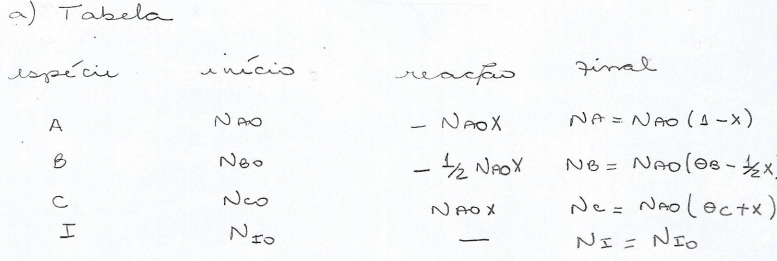 a) Tabela
espécie início reação final
A NAO - NAOX NA = NAO (1-X)
B NBO - 1/2 NAOX NB = NAO(ΘB - 1/2X)
C NCO NAOX NC = NAO (ΘC+X)
I NIO — NI = NIO